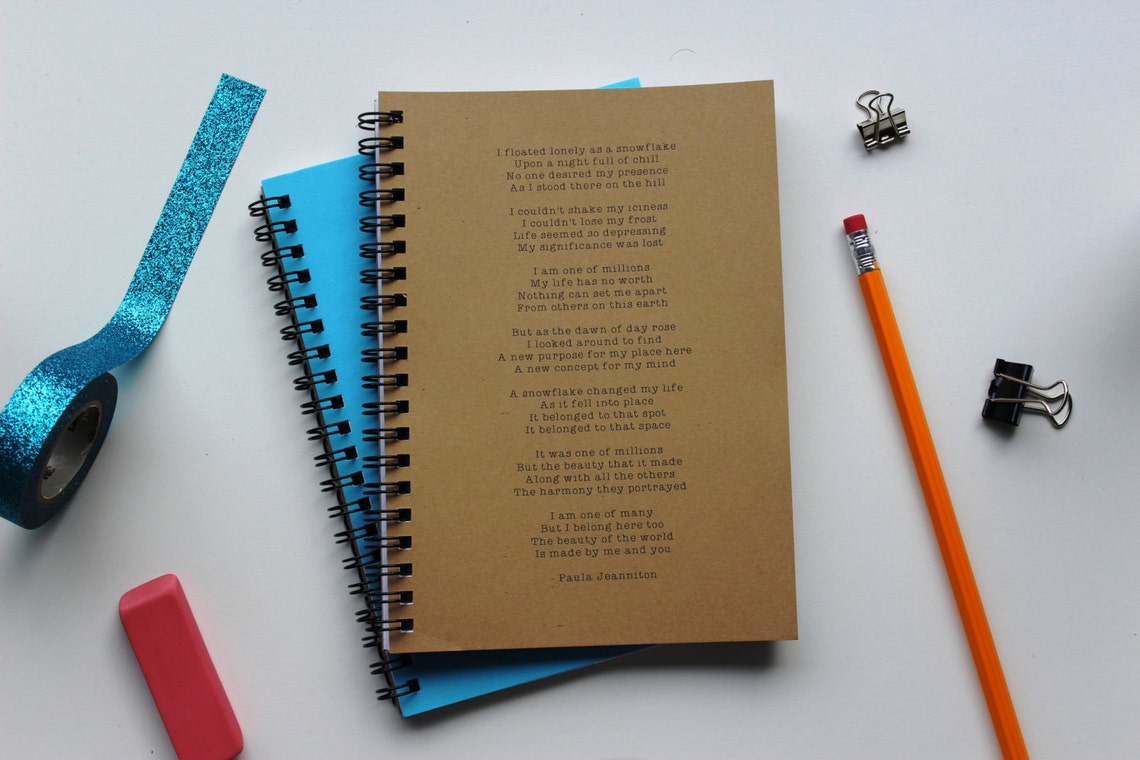 I floated lonely as a snowflake
Upon a night full of chill
No one desired my presence
As I stood there on the hill
I couldn't shake my iciness
I couldn't lose my frost
Life seemed so depressing
My significance was lost
I am one of millions
My life has no worth
Nothing can set me apart
From others on this earth
But as the dawn of day rose
I looked around to find
A new purpose for my place here
A new concept for my mind
A snowflake changed my life
As it fell into place
It belonged to that spot
It belonged to that space
It was one of millions
But the beauty that it made
Along with all the others
The harmony they portrayed
I am one of many
But I belong here too
The beauty of the world
Is made by me and you
- Paula Jeanniton